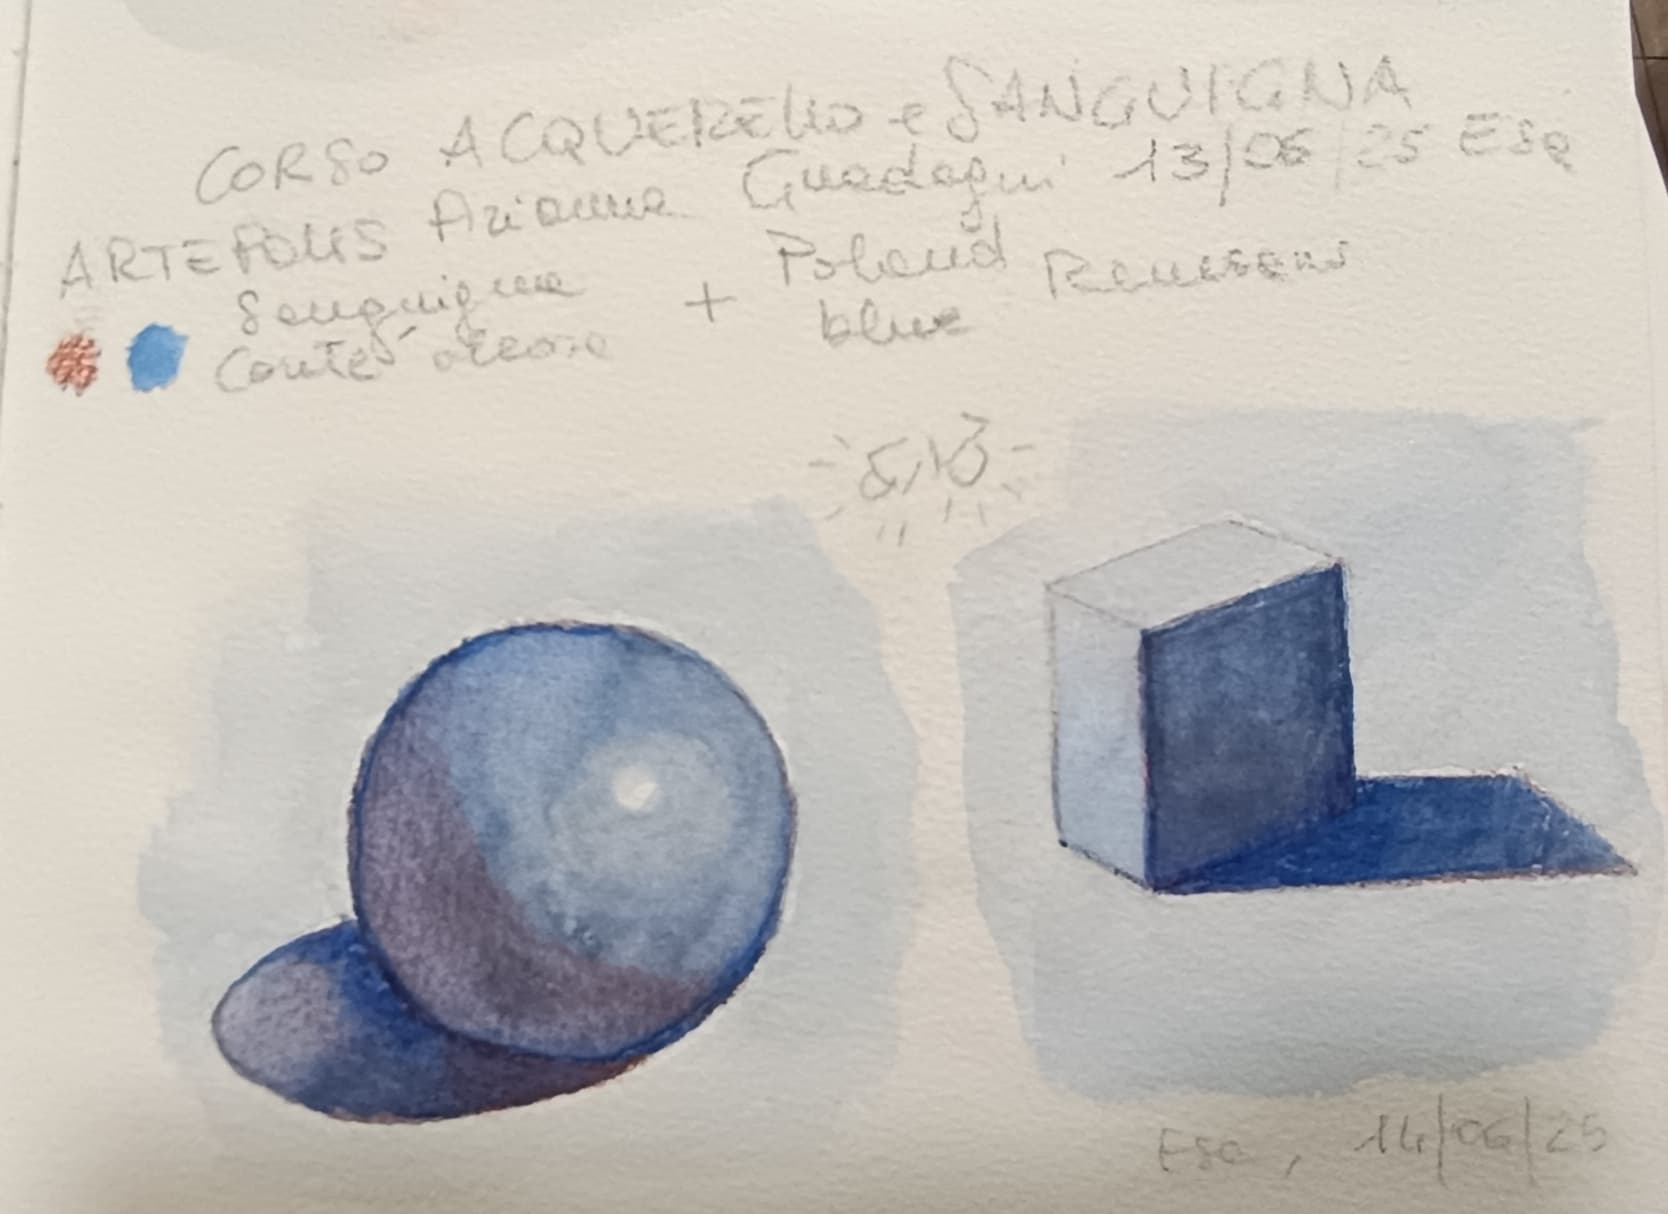 CORSO ACQUERELLO e SANGUIGNA
ARTEFOLIS Arianna Guadagni 13/06/25 Esa
Sanguigna + Poland
Conté blue
14/06/25